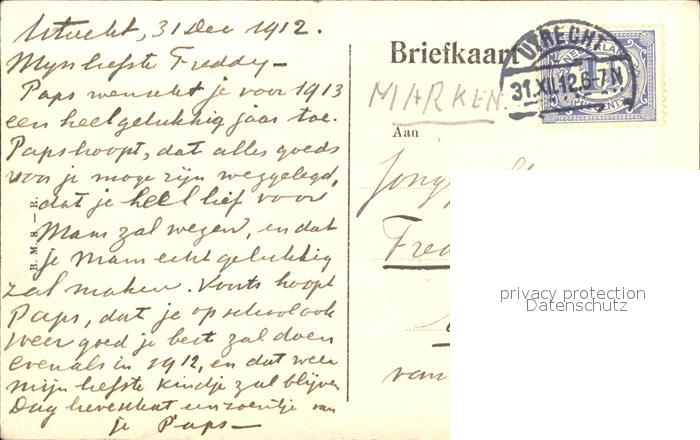 Utrecht, 31 Dec 1912.
Mijn liefste Freddy—
Paps wenscht je voor 1913
een heel gelukkig jaar toe.
Paps hoopt, dat alles goeds
voor je moge zijn weggelegd,
dat je heel lief voor
Mam zal wezen, en dat
je Mam echt gelukkig
zal maken. Voorts hoopt
Paps, dat je op school ook
weer goed je best zal doen
evenals in 1912, en dat weer
mijn liefste kindje zal blijven
Dag hevenhat een zoentje van
je Paps—
B. M. S. — E.
Briefkaart
MARKEN
UTRECHT
31.XII.12.6-7N
1
Aan
Fred
van
privacy protection
Datenschutz